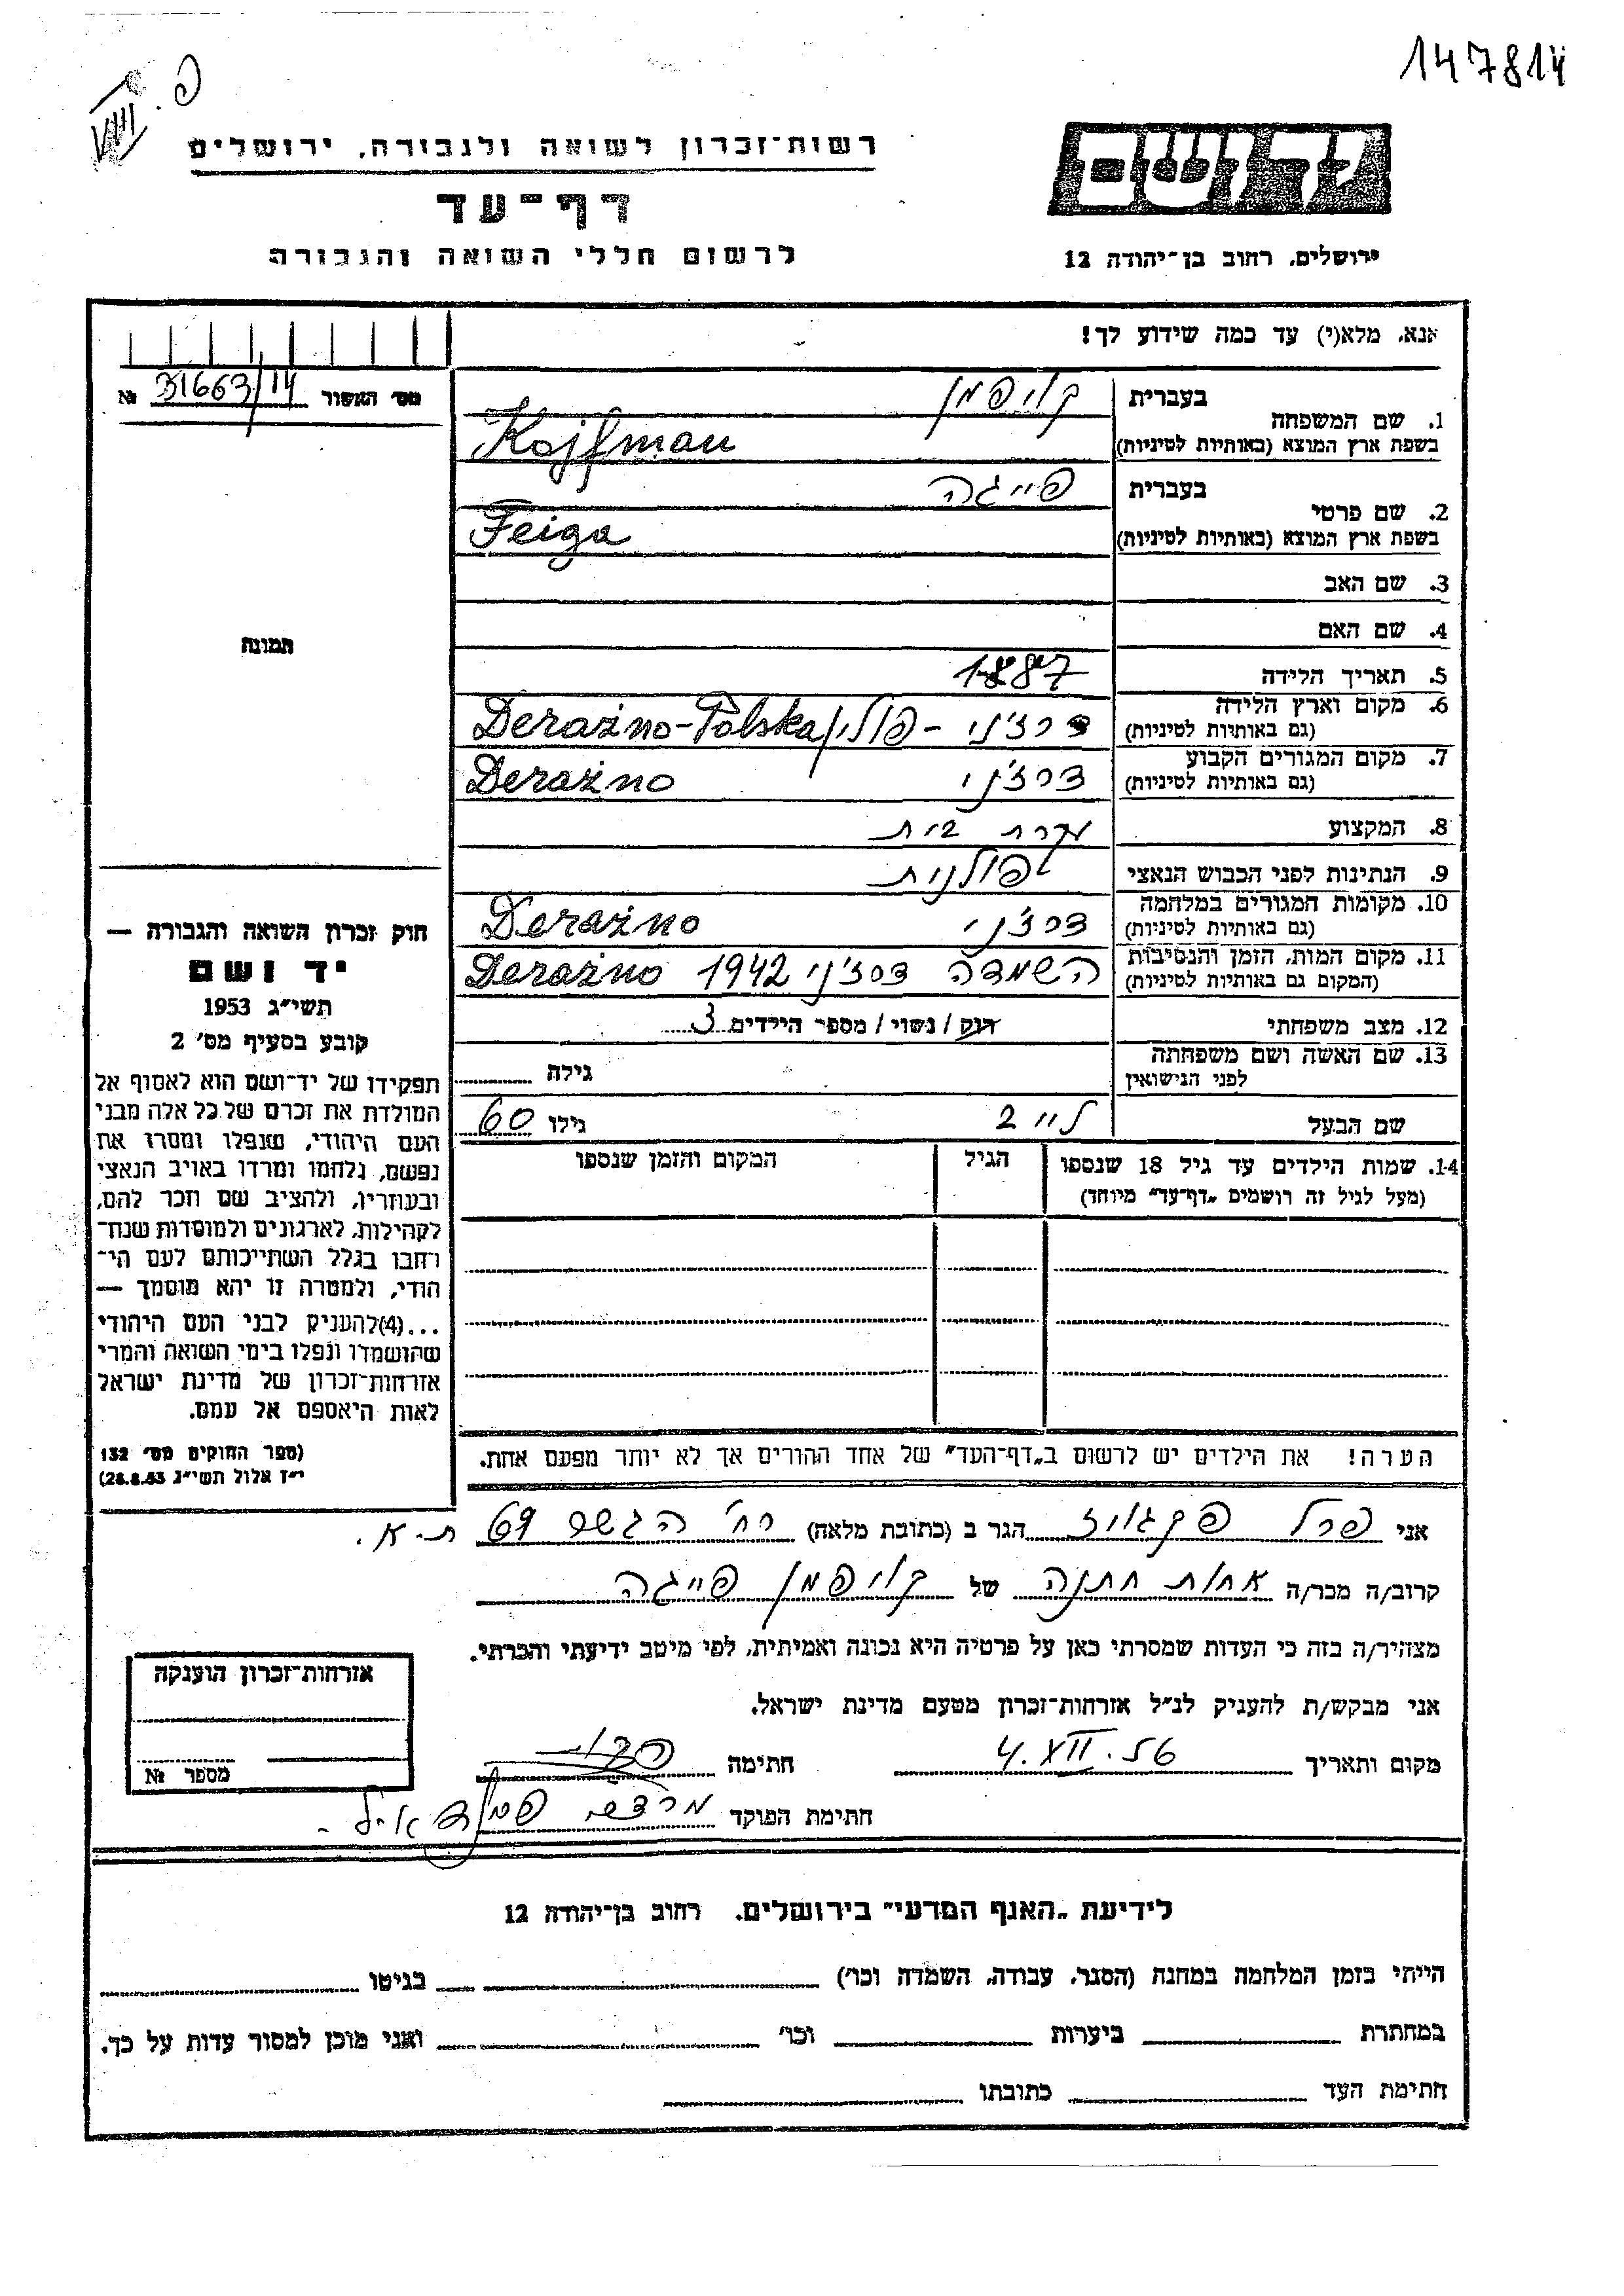 147814
פ.
VIII
רשות־זכרון לשואה ולגבורה, ירושלים
דף־עד
לרשום חללי השואה והגבורה
ירושלים, רחוב בן־יהודה 12
אנא, מלא(י) עד כמה שידוע לך!
מס׳ האשור 31663/14 №
תמונה
1. שם המשפחה בעברית קויפמן
בשפת ארץ המוצא (באותיות לטיניות) Kojfman
2. שם פרטי בעברית פייגה
בשפת ארץ המוצא (באותיות לטיניות) Feiga
3. שם האב
4. שם האם
5. תאריך הלידה 1887
6. מקום וארץ הלידה דרז׳ני - פולין Derażno-Polska
(גם באותיות לטיניות)
7. מקום המגורים הקבוע דרז׳ני Derażno
(גם באותיות לטיניות)
8. המקצוע עקרת בית
9. הנתינות לפני הכבוש הנאצי פולנית
10. מקומות המגורים במלחמה דרז׳ני Derażno
(גם באותיות לטיניות)
11. מקום המות, הזמן והנסיבות השמדה דרז׳ני 1942 Derażno
(המקום גם באותיות לטיניות)
12. מצב משפחתי רווק / נשוי / מספר הילדים 3
13. שם האשה ושם משפחתה גילה
לפני הנישואין
שם הבעל לייב גילו 60
14. שמות הילדים עד גיל 18 שנספו הגיל המקום והזמן שנספו
(מעל לגיל זה רושמים „דף־עד״ מיוחד)
הערה! את הילדים יש לרשום ב„דף־העד״ של אחד ההורים אך לא יותר מפעם אחת.
חוק זכרון השואה והגבורה —
יד ושם
תשי״ג 1953
קובע בסעיף מס׳ 2
תפקידו של יד־ושם הוא לאסוף אל
המולדת את זכרם של כל אלה מבני
העם היהודי, שנפלו ומסרו את
נפשם, נלחמו ומרדו באויב הנאצי
ובעוזריו, ולהציב שם וזכר להם,
לקהילות, לארגונים ולמוסדות שנח־
רחבו בגלל השתייכותם לעם הי־
הודי, ולמטרה זו יהא מוסמך —
...(4)להעניק לבני העם היהודי
שהושמדו ונפלו בימי השואה והמרי
אזרחות־זכרון של מדינת ישראל
לאות היאספם אל עמם.
(ספר החוקים מס׳ 132
י״ז אלול תשי״ג 28.8.53)
אני פרל הגר ב (כתובת מלאה) רח׳ הגשר 69 ת.א.
קרוב/ה מכר/ה אחות חתנה של קויפמן פייגה
מצהיר/ה בזה כי העדות שמסרתי כאן על פרטיה היא נכונה ואמיתית, לפי מיטב ידיעתי והכרתי.
אני מבקש/ת להעניק לנ״ל אזרחות־זכרון מטעם מדינת ישראל.
מקום ותאריך 4.XII.56 חתימה
חתימת הפוקד
אזרחות־זכרון הוענקה
מספר №
לידיעת „האגף המדעי״ בירושלים, רחוב בן־יהודה 12
הייתי בזמן המלחמה במחנה (הסגר, עבודה, השמדה וכו׳) בגיטו
במחתרת ביערות וכו׳ ואני מוכן למסור עדות על כך.
חתימת העד כתובתו